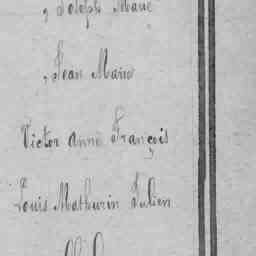 , Joseph Marie
, Jean Marie
Victor anne François
Louis Mathurin Julien